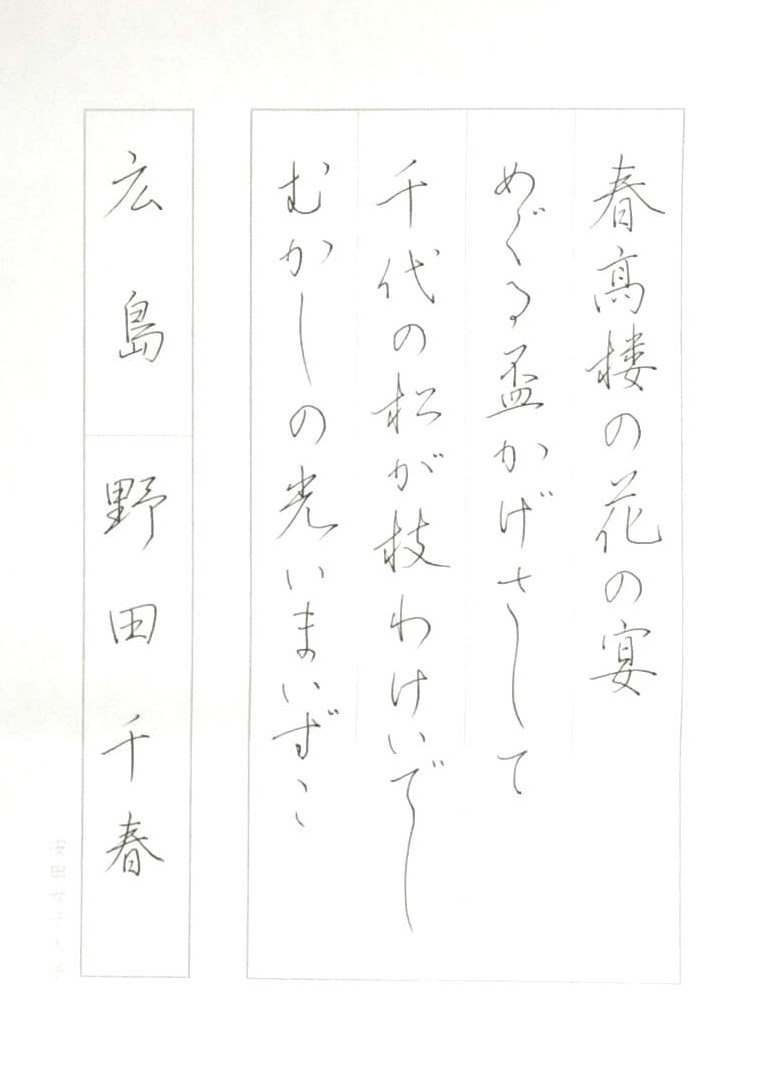 春高楼の花の宴
めぐる盃かげさして
千代の松が枝わけいでし
むかしの光いまいずこ
広島 野田千春